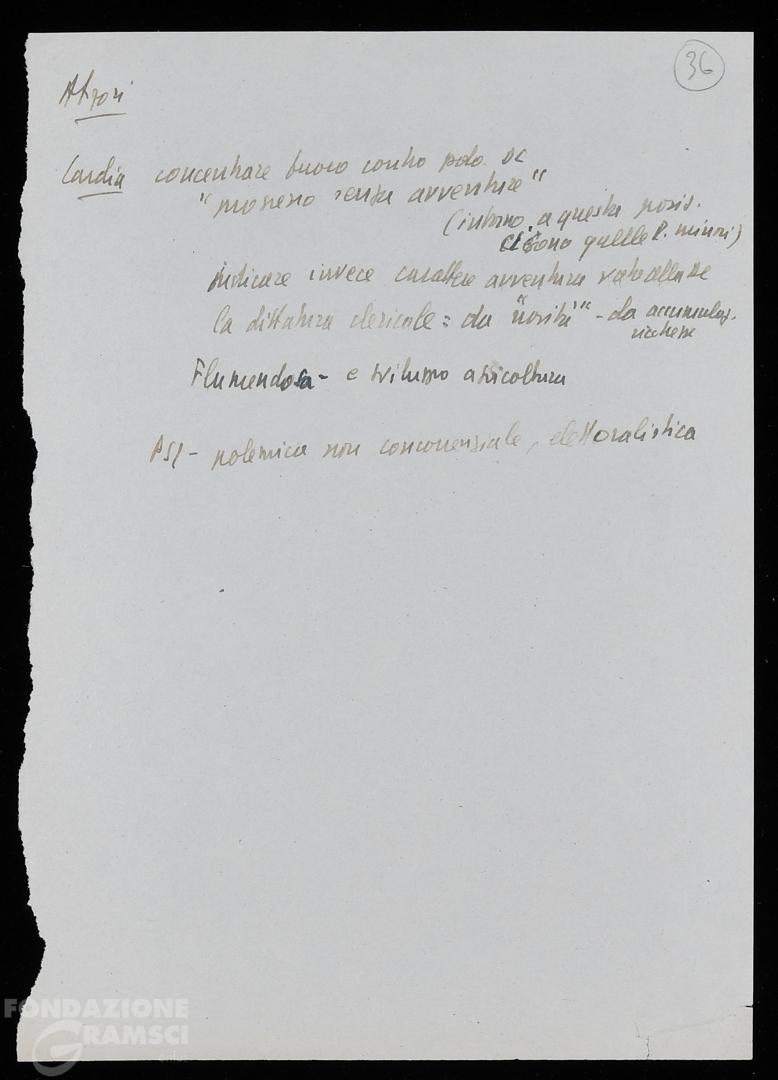 36
Atzori
Cardia concentrare fuoco contro polo DC
"progresso senza avventure"
(intorno a questa posiz.
ci sono quelle P. minori)
indicare invece carattere avventura voto alla DC
la dittatura clericale = da "novità" - da accumulaz.
ricchezze
Flumendosa - e sviluppo agricoltura
PSI - polemica non concorrenziale, elettoralistica
FONDAZIONE
GRAMSCI
onlus